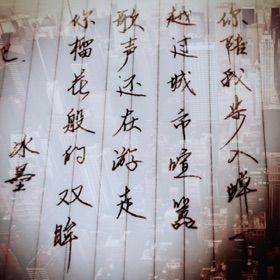 你陪我步入蝉
越过城市喧嚣
歌声还在游走
你榴花般的双眸
冰墨